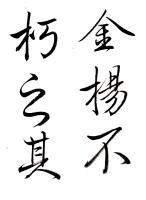 金楊不
朽之其